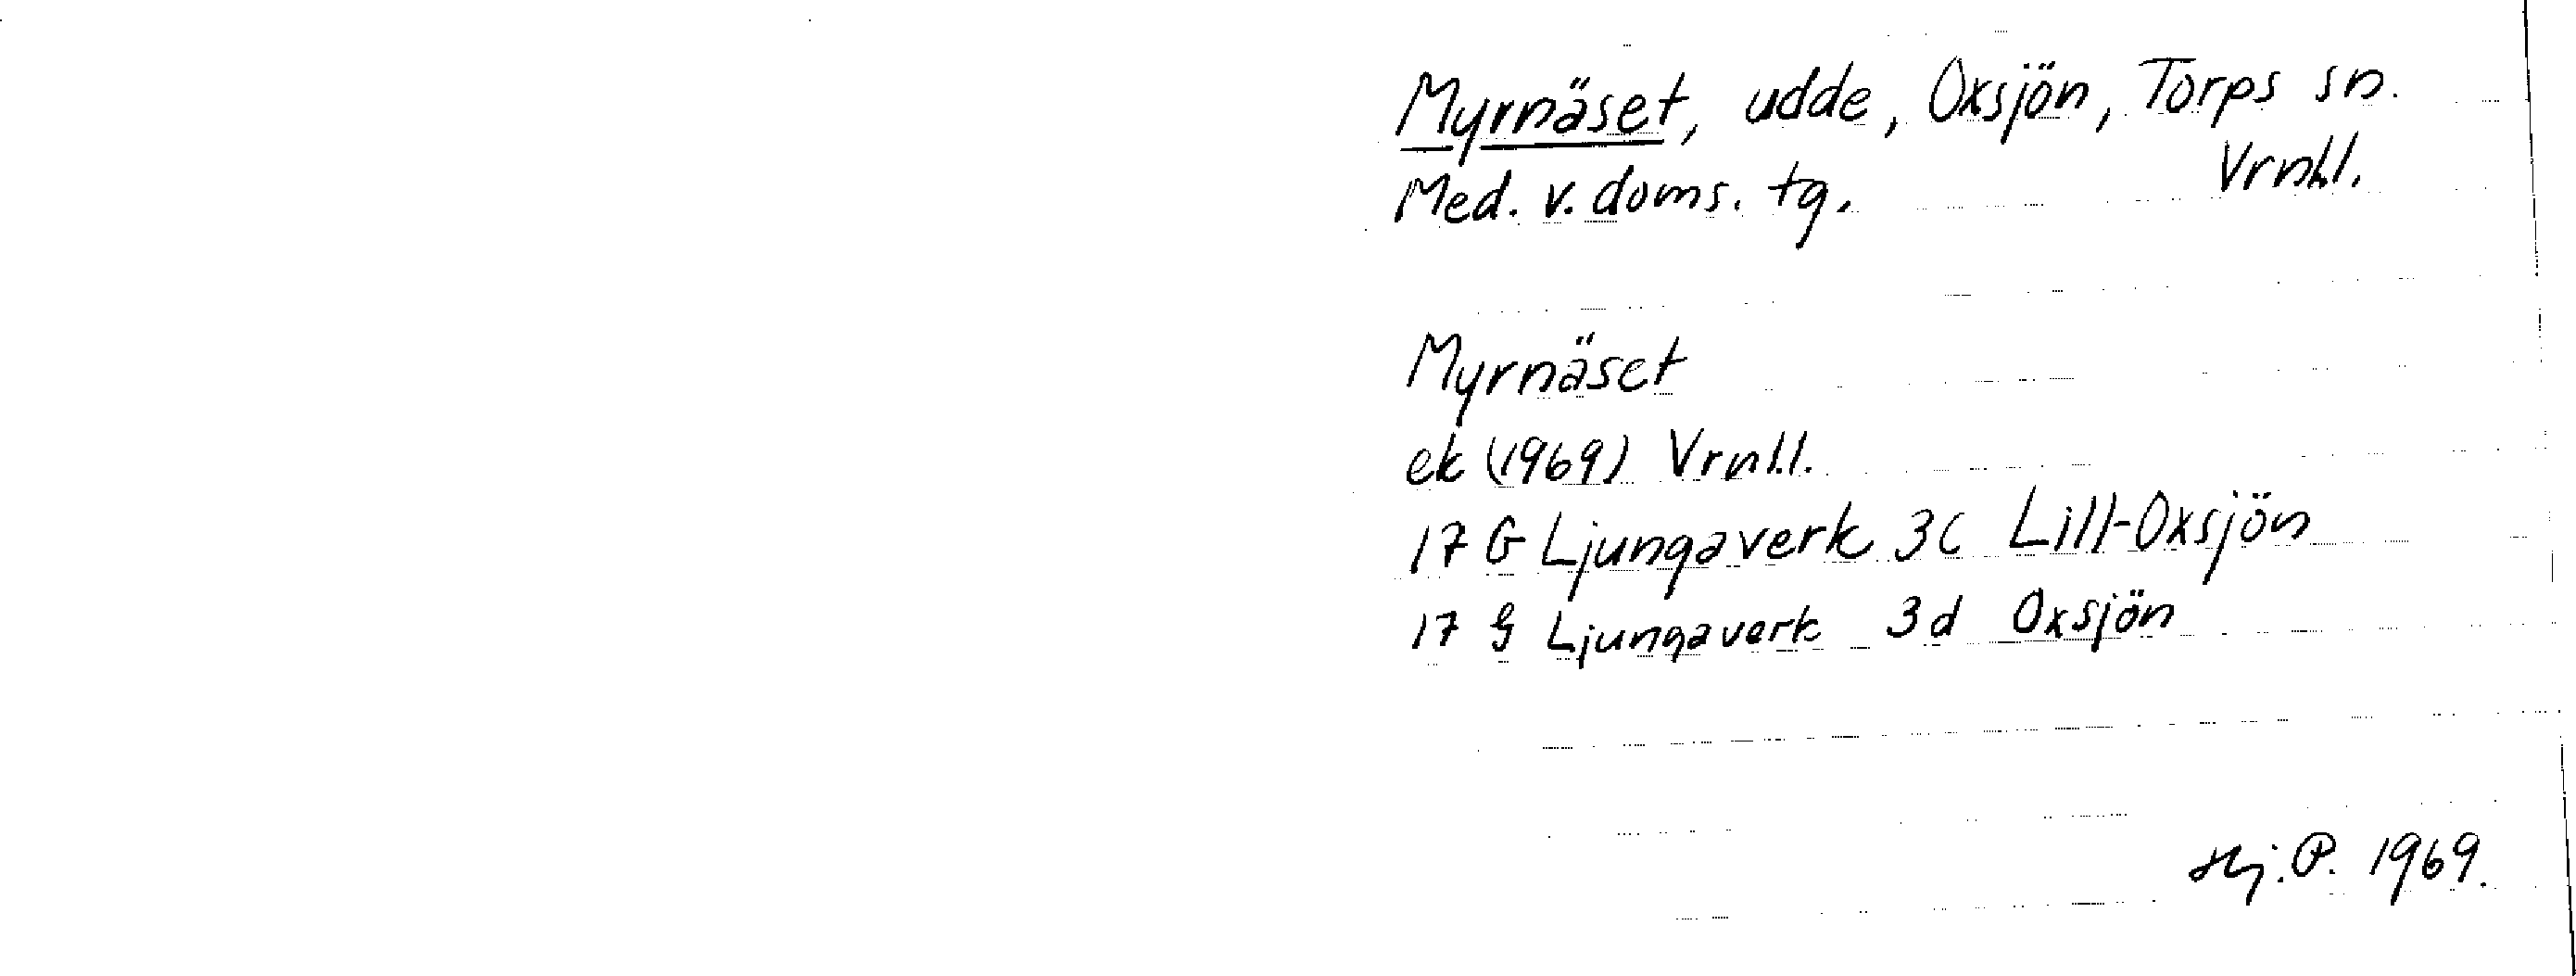 Myrnäset, udde, Oxsjön, Torps sn.
Med. v. doms. tg. Vrnl.l.
Myrnäset
ek (1969) Vrnl.l.
17 G Ljungaverk 3c Lill-Oxsjön
17 G Ljungaverk 3d Oxsjön
Hj. P. 1969.